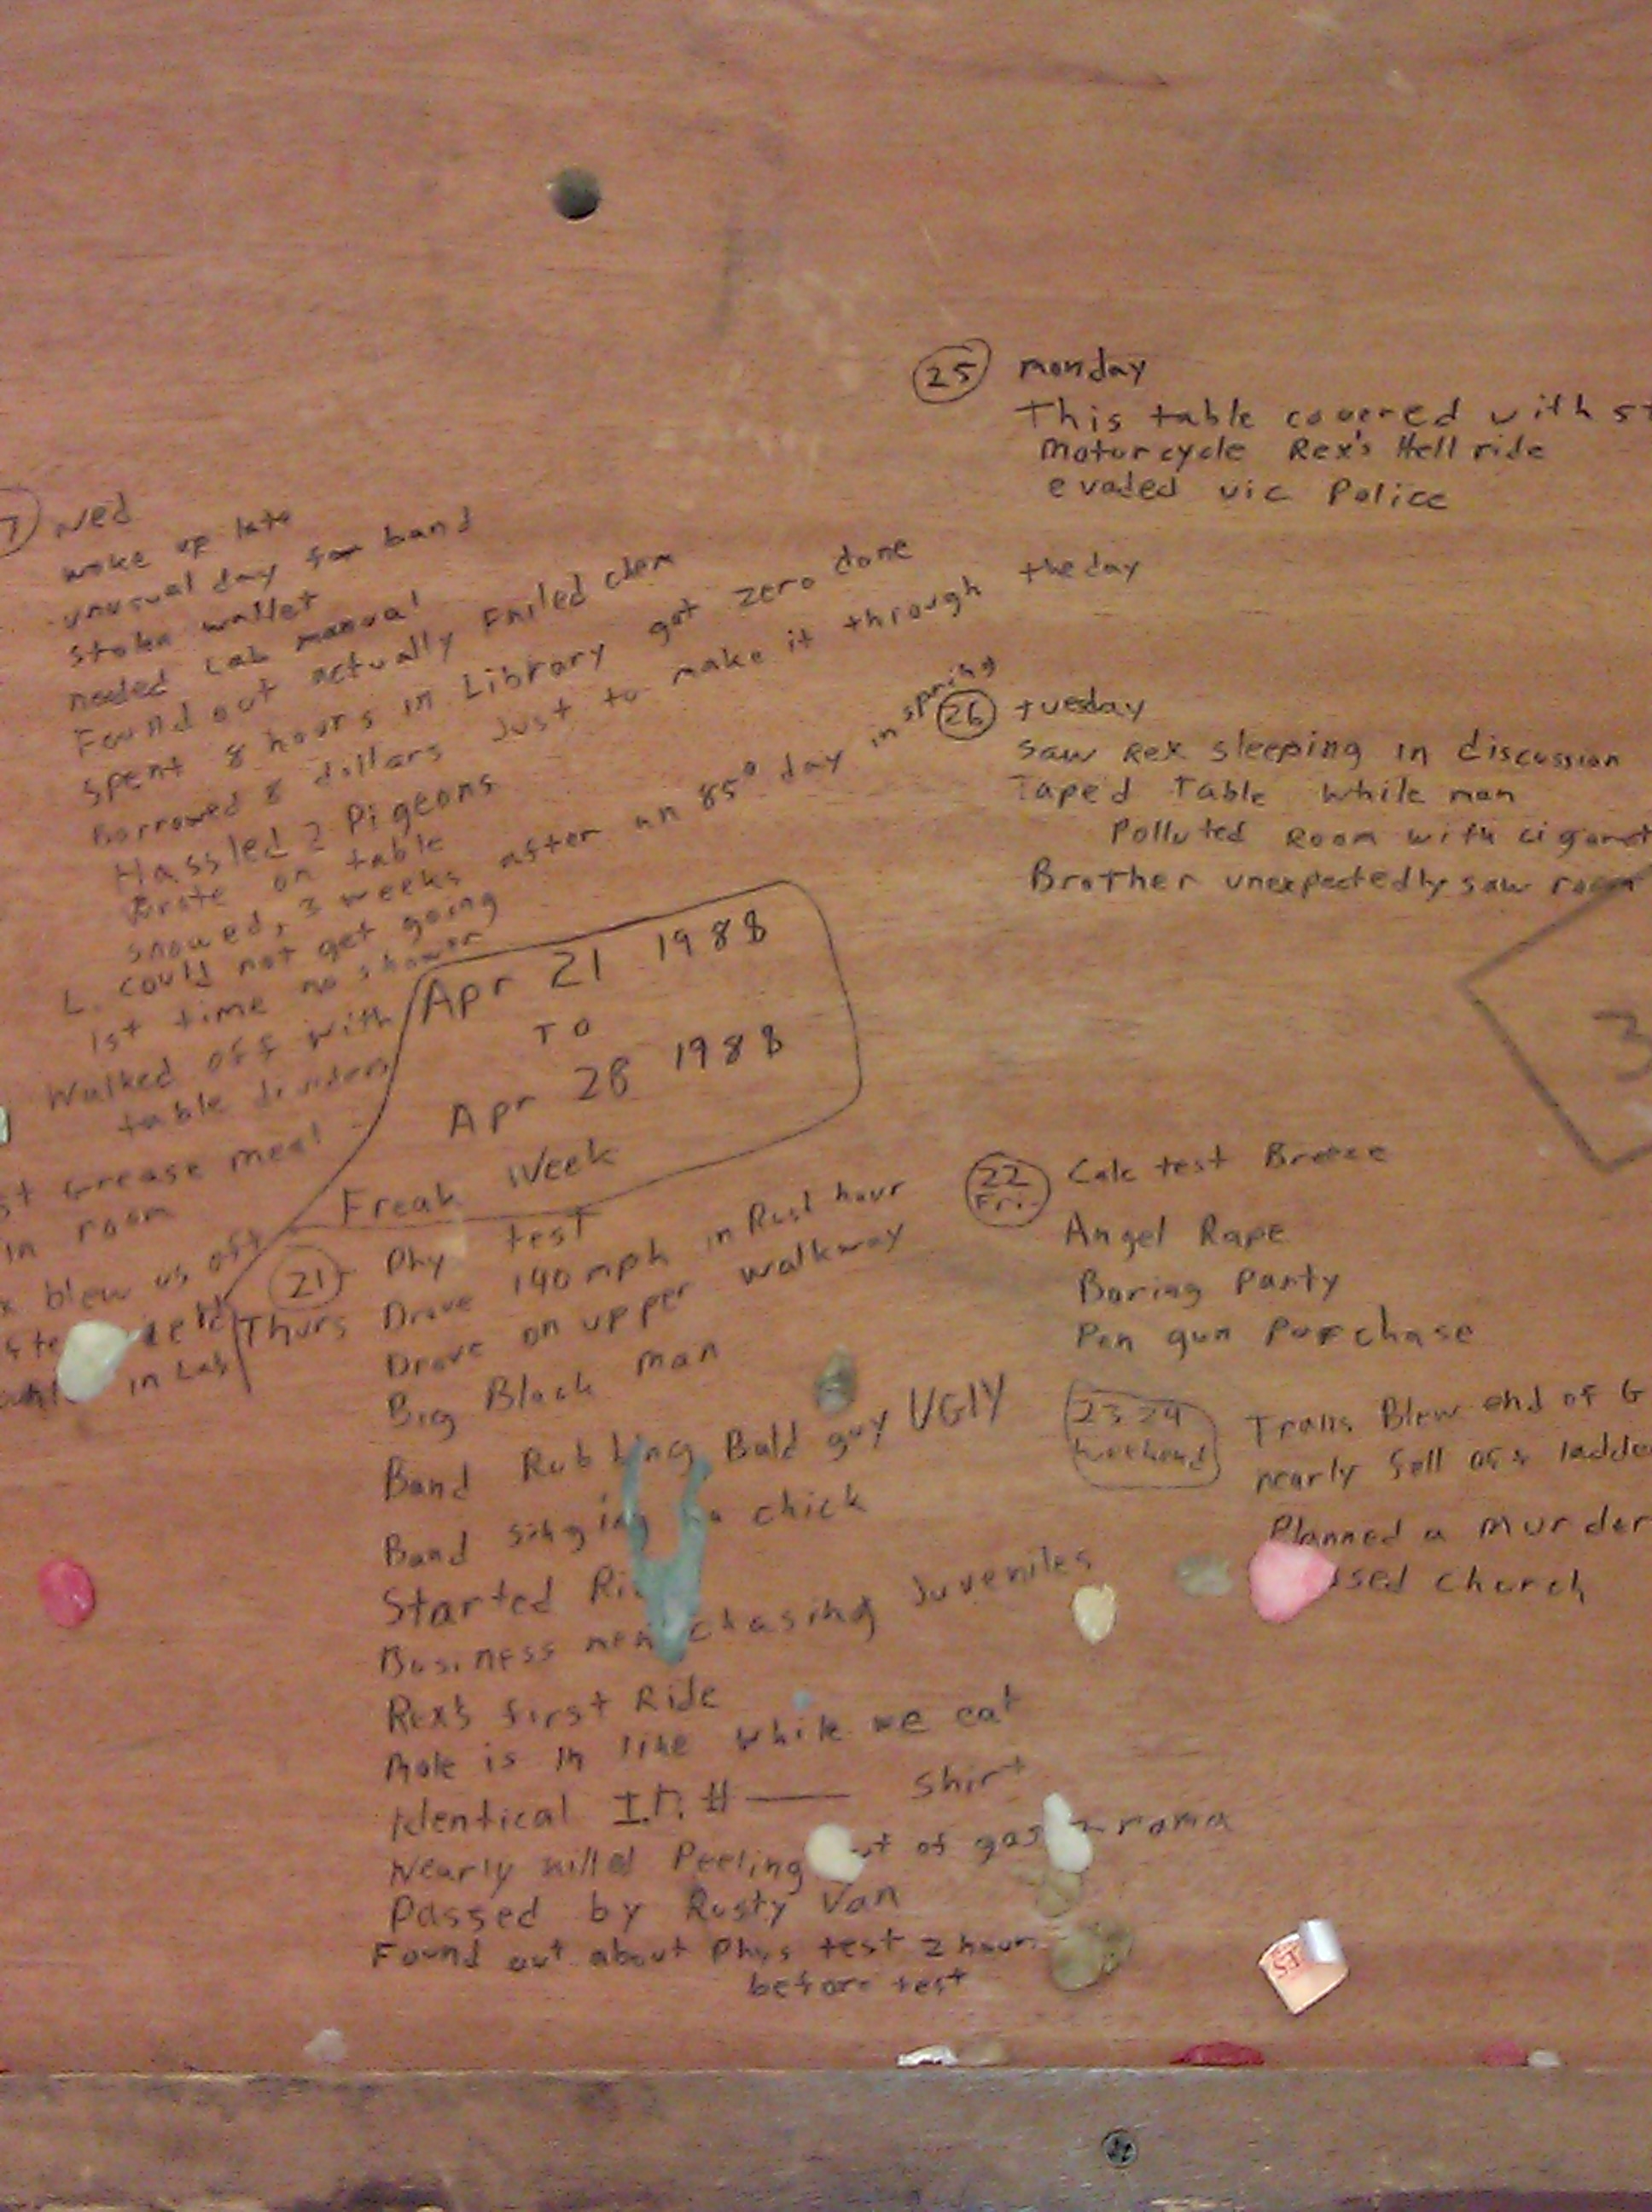 25 monday
This table covered with st
Motorcycle Rex's Hell ride
evaded vic Police
7 Wed
woke up late
unusual day for band
stolen wallet
needed Lab manual
Found out actually Failed chem
Spent 8 hours in Library got zero done
Borrowed 8 dollars Just to make it through the day
Hassled 2 Pigeons
Wrote on table
snowed, 3 weeks after an 85° day in spring
L. could not get going
1st time no shower
Walked off with
table dividers
st Grease meal
in room
x blew us off
in Lab
26 tuesday
Saw Rex sleeping in discussion
Taped Table while man
Polluted Room with cigaret
Brother unexpectedly saw room
3
Apr 21 1988
TO
Apr 28 1988
Freak Week
21 Thurs
Phy test
Drove 140 mph in Rush hour
Drove on upper walkway
Big Black man
Band Rubbing Bald guy UGLY
Band singing chick
Started
Business men chasing Juveniles
Rex's first Ride
Mole is in line while we eat
Identical I.D. # —— shirt
Nearly killed Peeling of gas rama
Passed by Rusty Van
Found out about Phys test 2 hours
before test
22 Fri.
Calc test Breeze
Angel Rape
Boring Party
Pen gun Purchase
23 24 weekend
Trans. Blew end of G
nearly fell off ladde
Planned a murder
church